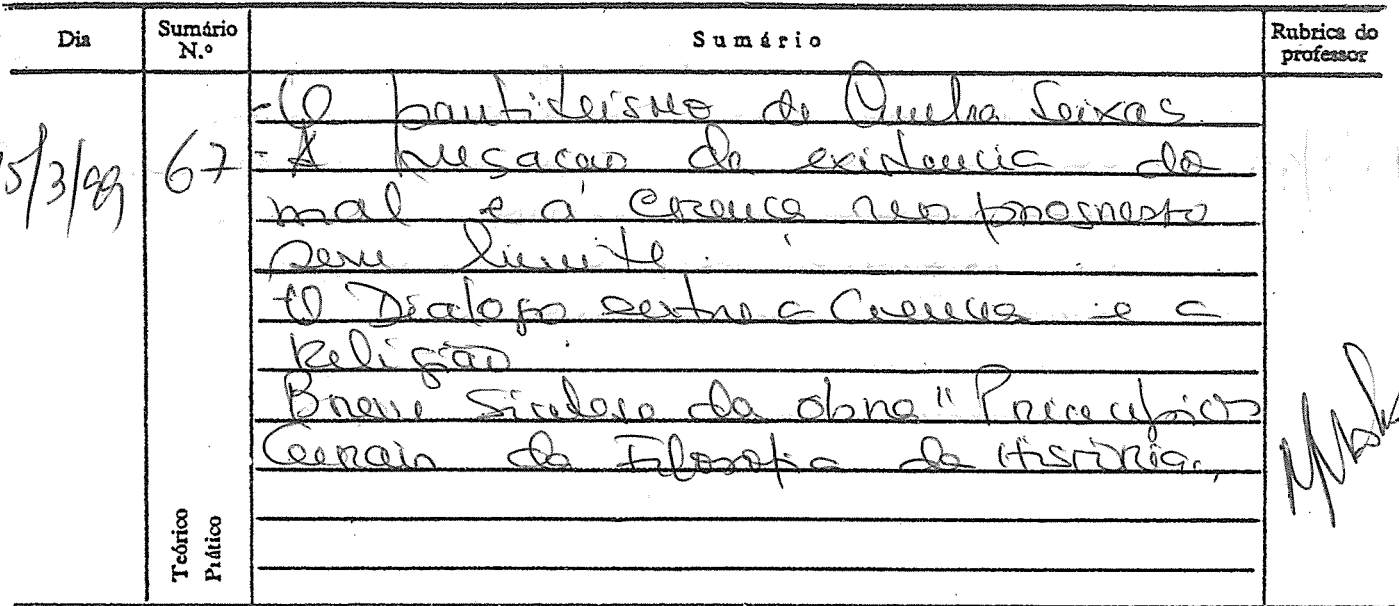 Dia
Sumário N.º
Sumário
Rubrica do professor
15/3/99
67
- O pantiteismo de Cunha Seixas
- A negação da existencia do
mal e a crença no progresso
sem limite.
O Dialogo entre a Ciencia e a
Religião.
Breve sintese da obra "Principios
Gerais de Filosofia da História.
Teórico
Prático